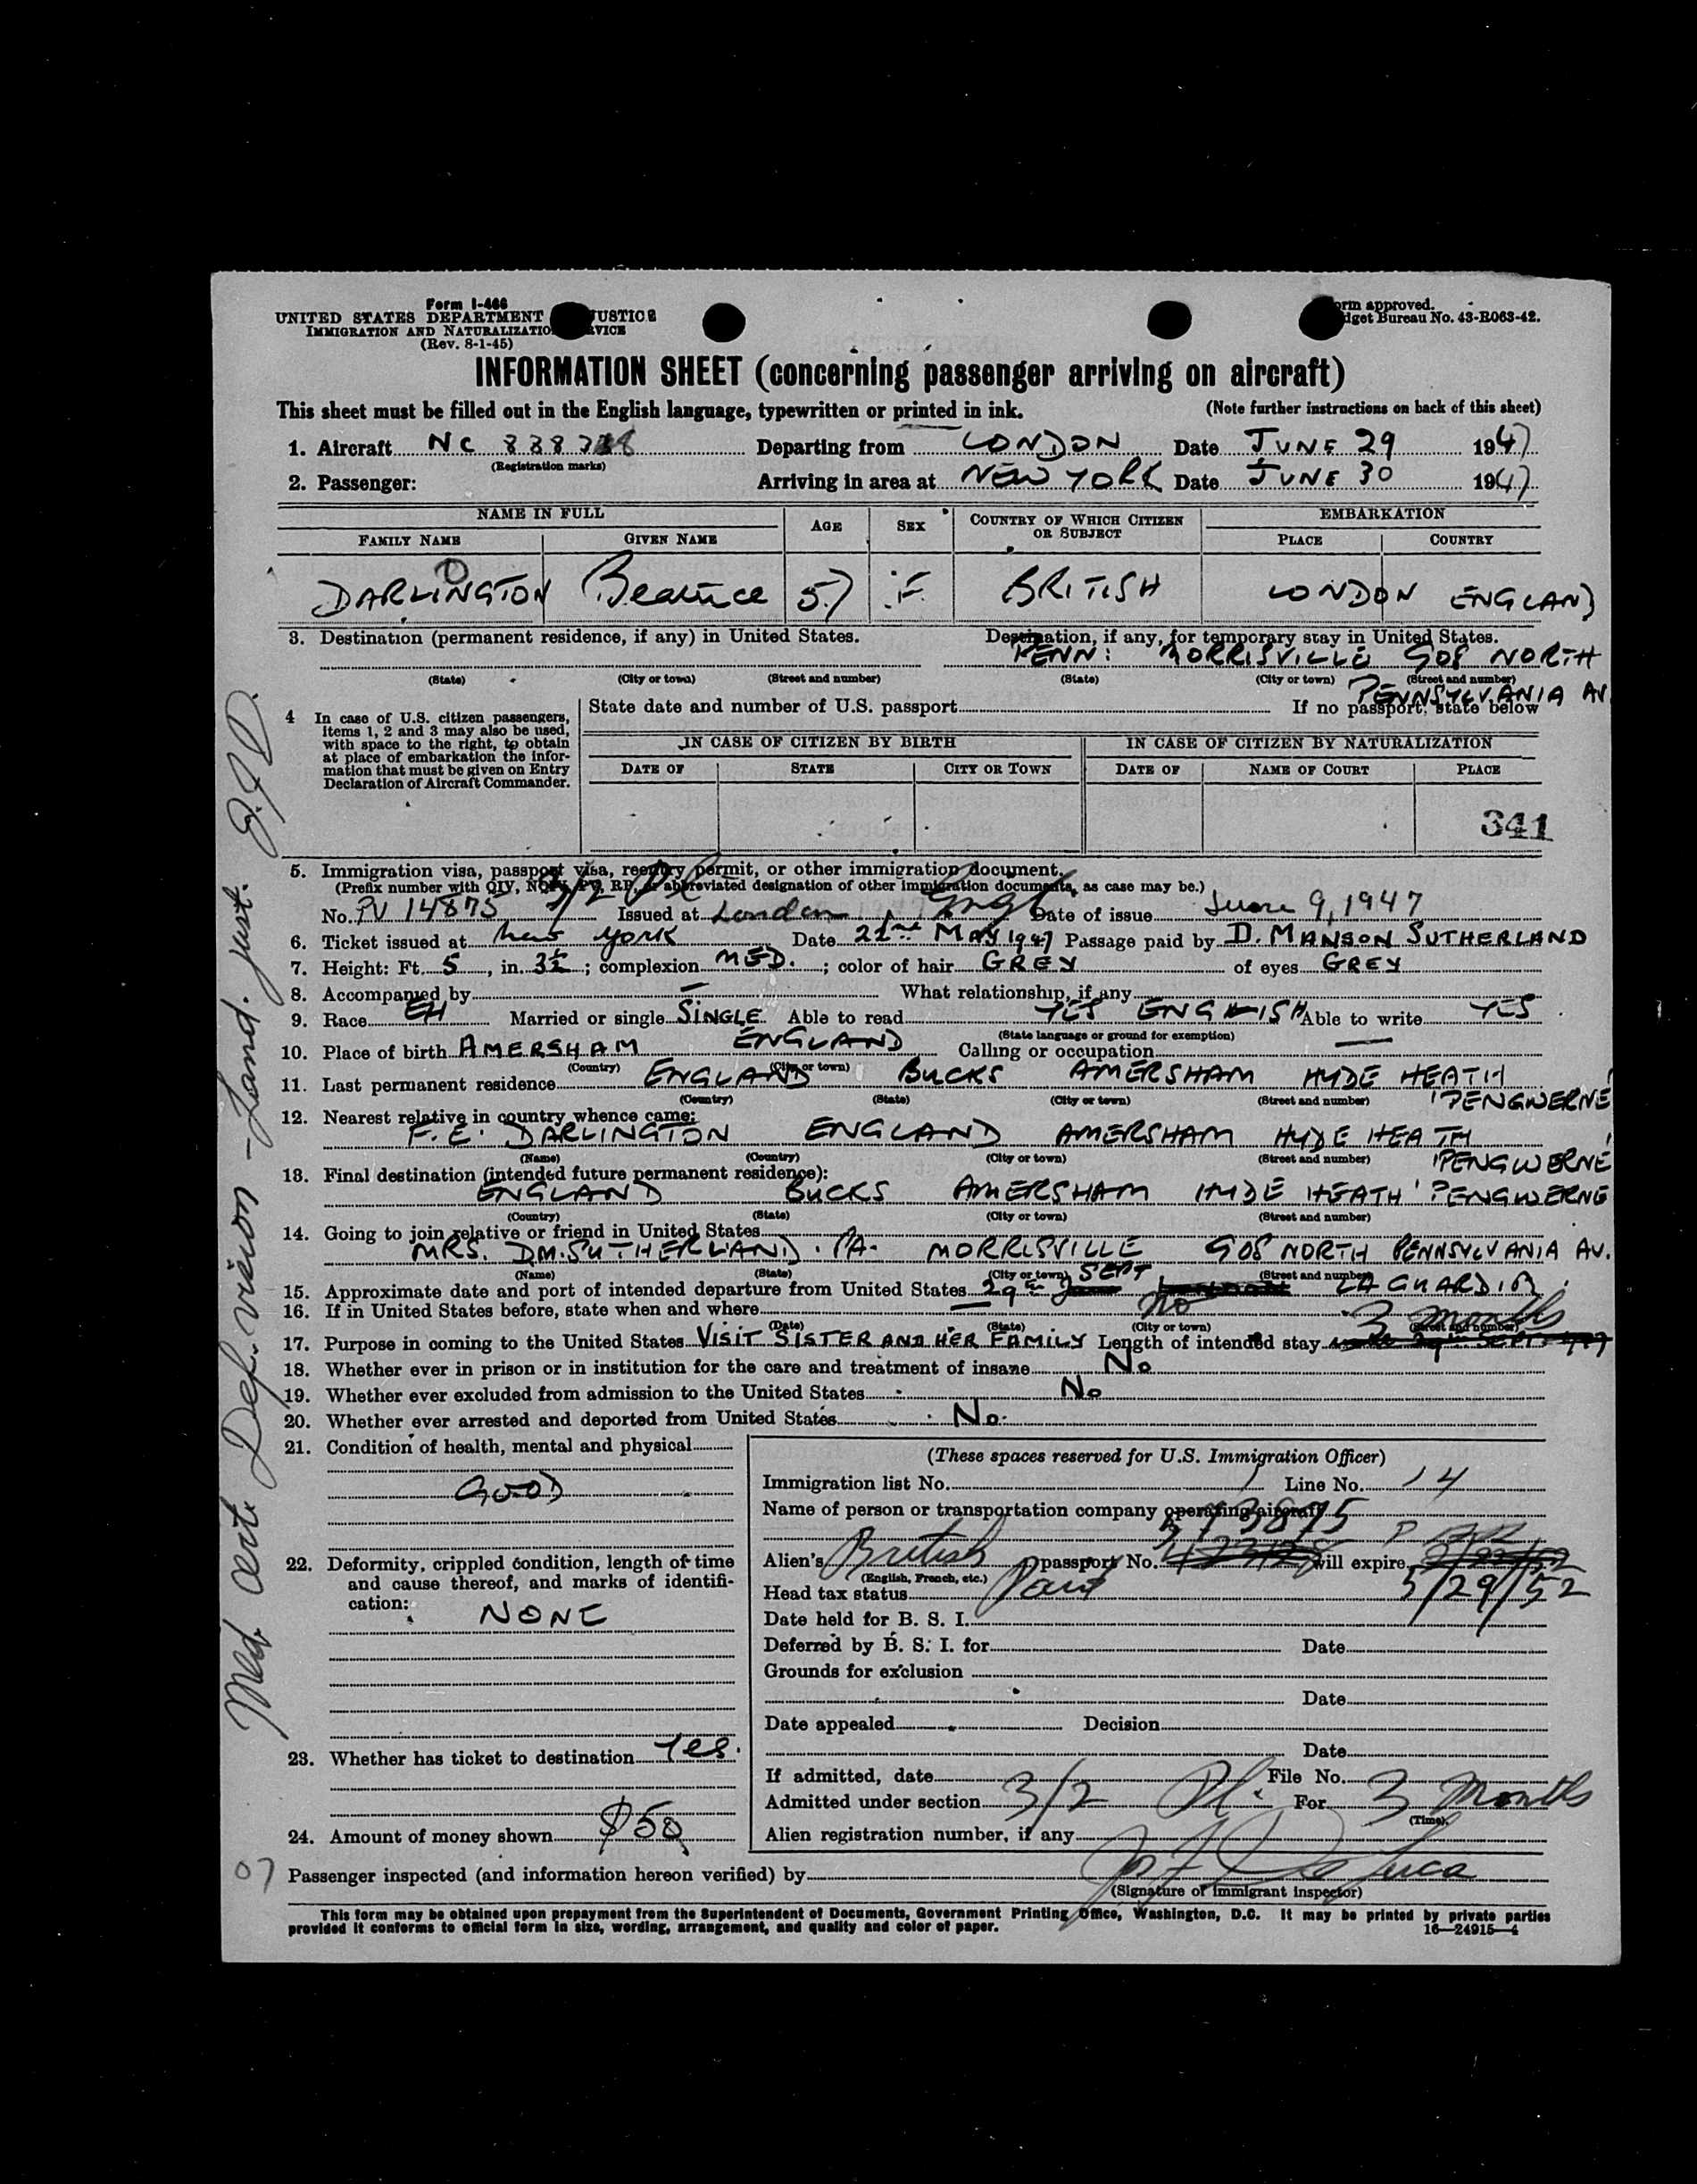 Form I-466
UNITED STATES DEPARTMENT JUSTICE
IMMIGRATION AND NATURALIZATION
(Rev. 8-1-45)
Form approved.
Budget Bureau No. 43-R063-42.
INFORMATION SHEET (concerning passenger arriving on aircraft)
This sheet must be filled out in the English language, typewritten or printed in ink. (Note further instructions on back of this sheet)
1. Aircraft NC Departing from LONDON Date JUNE 29 1947
(Registration marks)
2. Passenger: Arriving in area at NEW YORK Date JUNE 30 1947
NAME IN FULL AGE SEX COUNTRY OF WHICH CITIZEN OR SUBJECT EMBARKATION
FAMILY NAME GIVEN NAME PLACE COUNTRY
DARLINGTON Beatrice 57 F BRITISH LONDON ENGLAND
3. Destination (permanent residence, if any) in United States. Destination, if any, for temporary stay in United States.
PENN: MORRISVILLE 908 NORTH
(State) (City or town) (Street and number) (State) (City or town) (Street and number)
PENNSYLVANIA AV
4 In case of U.S. citizen passengers, items 1, 2 and 3 may also be used, with space to the right, to obtain at place of embarkation the information that must be given on Entry Declaration of Aircraft Commander.
State date and number of U.S. passport If no passport, state below
IN CASE OF CITIZEN BY BIRTH IN CASE OF CITIZEN BY NATURALIZATION
DATE OF STATE CITY OR TOWN DATE OF NAME OF COURT PLACE
341
5. Immigration visa, passport visa, reentry permit, or other immigration document.
(Prefix number with QIV, NQIV, PV, RP, or abbreviated designation of other immigration documents, as case may be.)
3/2 Pl
No. PV 14875 Issued at London, Engl Date of issue June 9, 1947
6. Ticket issued at New York Date 22nd MAY 1947 Passage paid by D. MANSON SUTHERLAND
7. Height: Ft. 5, in. 3½; complexion MED.; color of hair GREY of eyes GREY
8. Accompanied by — What relationship, if any
9. Race EH Married or single SINGLE Able to read YES ENGLISH Able to write YES
(State language or ground for exemption)
10. Place of birth AMERSHAM ENGLAND Calling or occupation —
(Country) (City or town)
11. Last permanent residence ENGLAND BUCKS AMERSHAM HYDE HEATH
(Country) (State) (City or town) (Street and number) 'PENGWERNE'
12. Nearest relative in country whence came:
F.E. DARLINGTON ENGLAND AMERSHAM HYDE HEATH
(Name) (Country) (City or town) (Street and number) 'PENGWERNE'
13. Final destination (intended future permanent residence):
ENGLAND BUCKS AMERSHAM HYDE HEATH 'PENGWERNE
(Country) (State) (City or town) (Street and number)
14. Going to join relative or friend in United States
MRS. D.M. SUTHERLAND. PA. MORRISVILLE 908 NORTH PENNSYLVANIA AV.
(Name) (State) (City or town) (Street and number)
15. Approximate date and port of intended departure from United States 29th SEPT LA GUARDIA
16. If in United States before, state when and where — No
(Date) (State) (City or town) (Street and number)
17. Purpose in coming to the United States VISIT SISTER AND HER FAMILY Length of intended stay 3 months
18. Whether ever in prison or in institution for the care and treatment of insane No
19. Whether ever excluded from admission to the United States No
20. Whether ever arrested and deported from United States No.
21. Condition of health, mental and physical
GOOD
22. Deformity, crippled condition, length of time and cause thereof, and marks of identification:
NONE
23. Whether has ticket to destination Yes.
24. Amount of money shown $50
(These spaces reserved for U.S. Immigration Officer)
Immigration list No. 1 Line No. 14
Name of person or transportation company operating aircraft
Alien's British passport No. will expire 5/29/52
(English, French, etc.)
Head tax status
Date held for B. S. I.
Deferred by B. S. I. for Date
Grounds for exclusion
Date
Date appealed Decision
Date
If admitted, date File No.
Admitted under section 3/2 Pl. For 3 Months
(Time)
Alien registration number, if any
07 Passenger inspected (and information hereon verified) by
(Signature of immigrant inspector)
This form may be obtained upon prepayment from the Superintendent of Documents, Government Printing Office, Washington, D.C. It may be printed by private parties
provided it conforms to official form in size, wording, arrangement, and quality and color of paper. 16—24915-4
Med. Cert. Def. vision - Land. just.